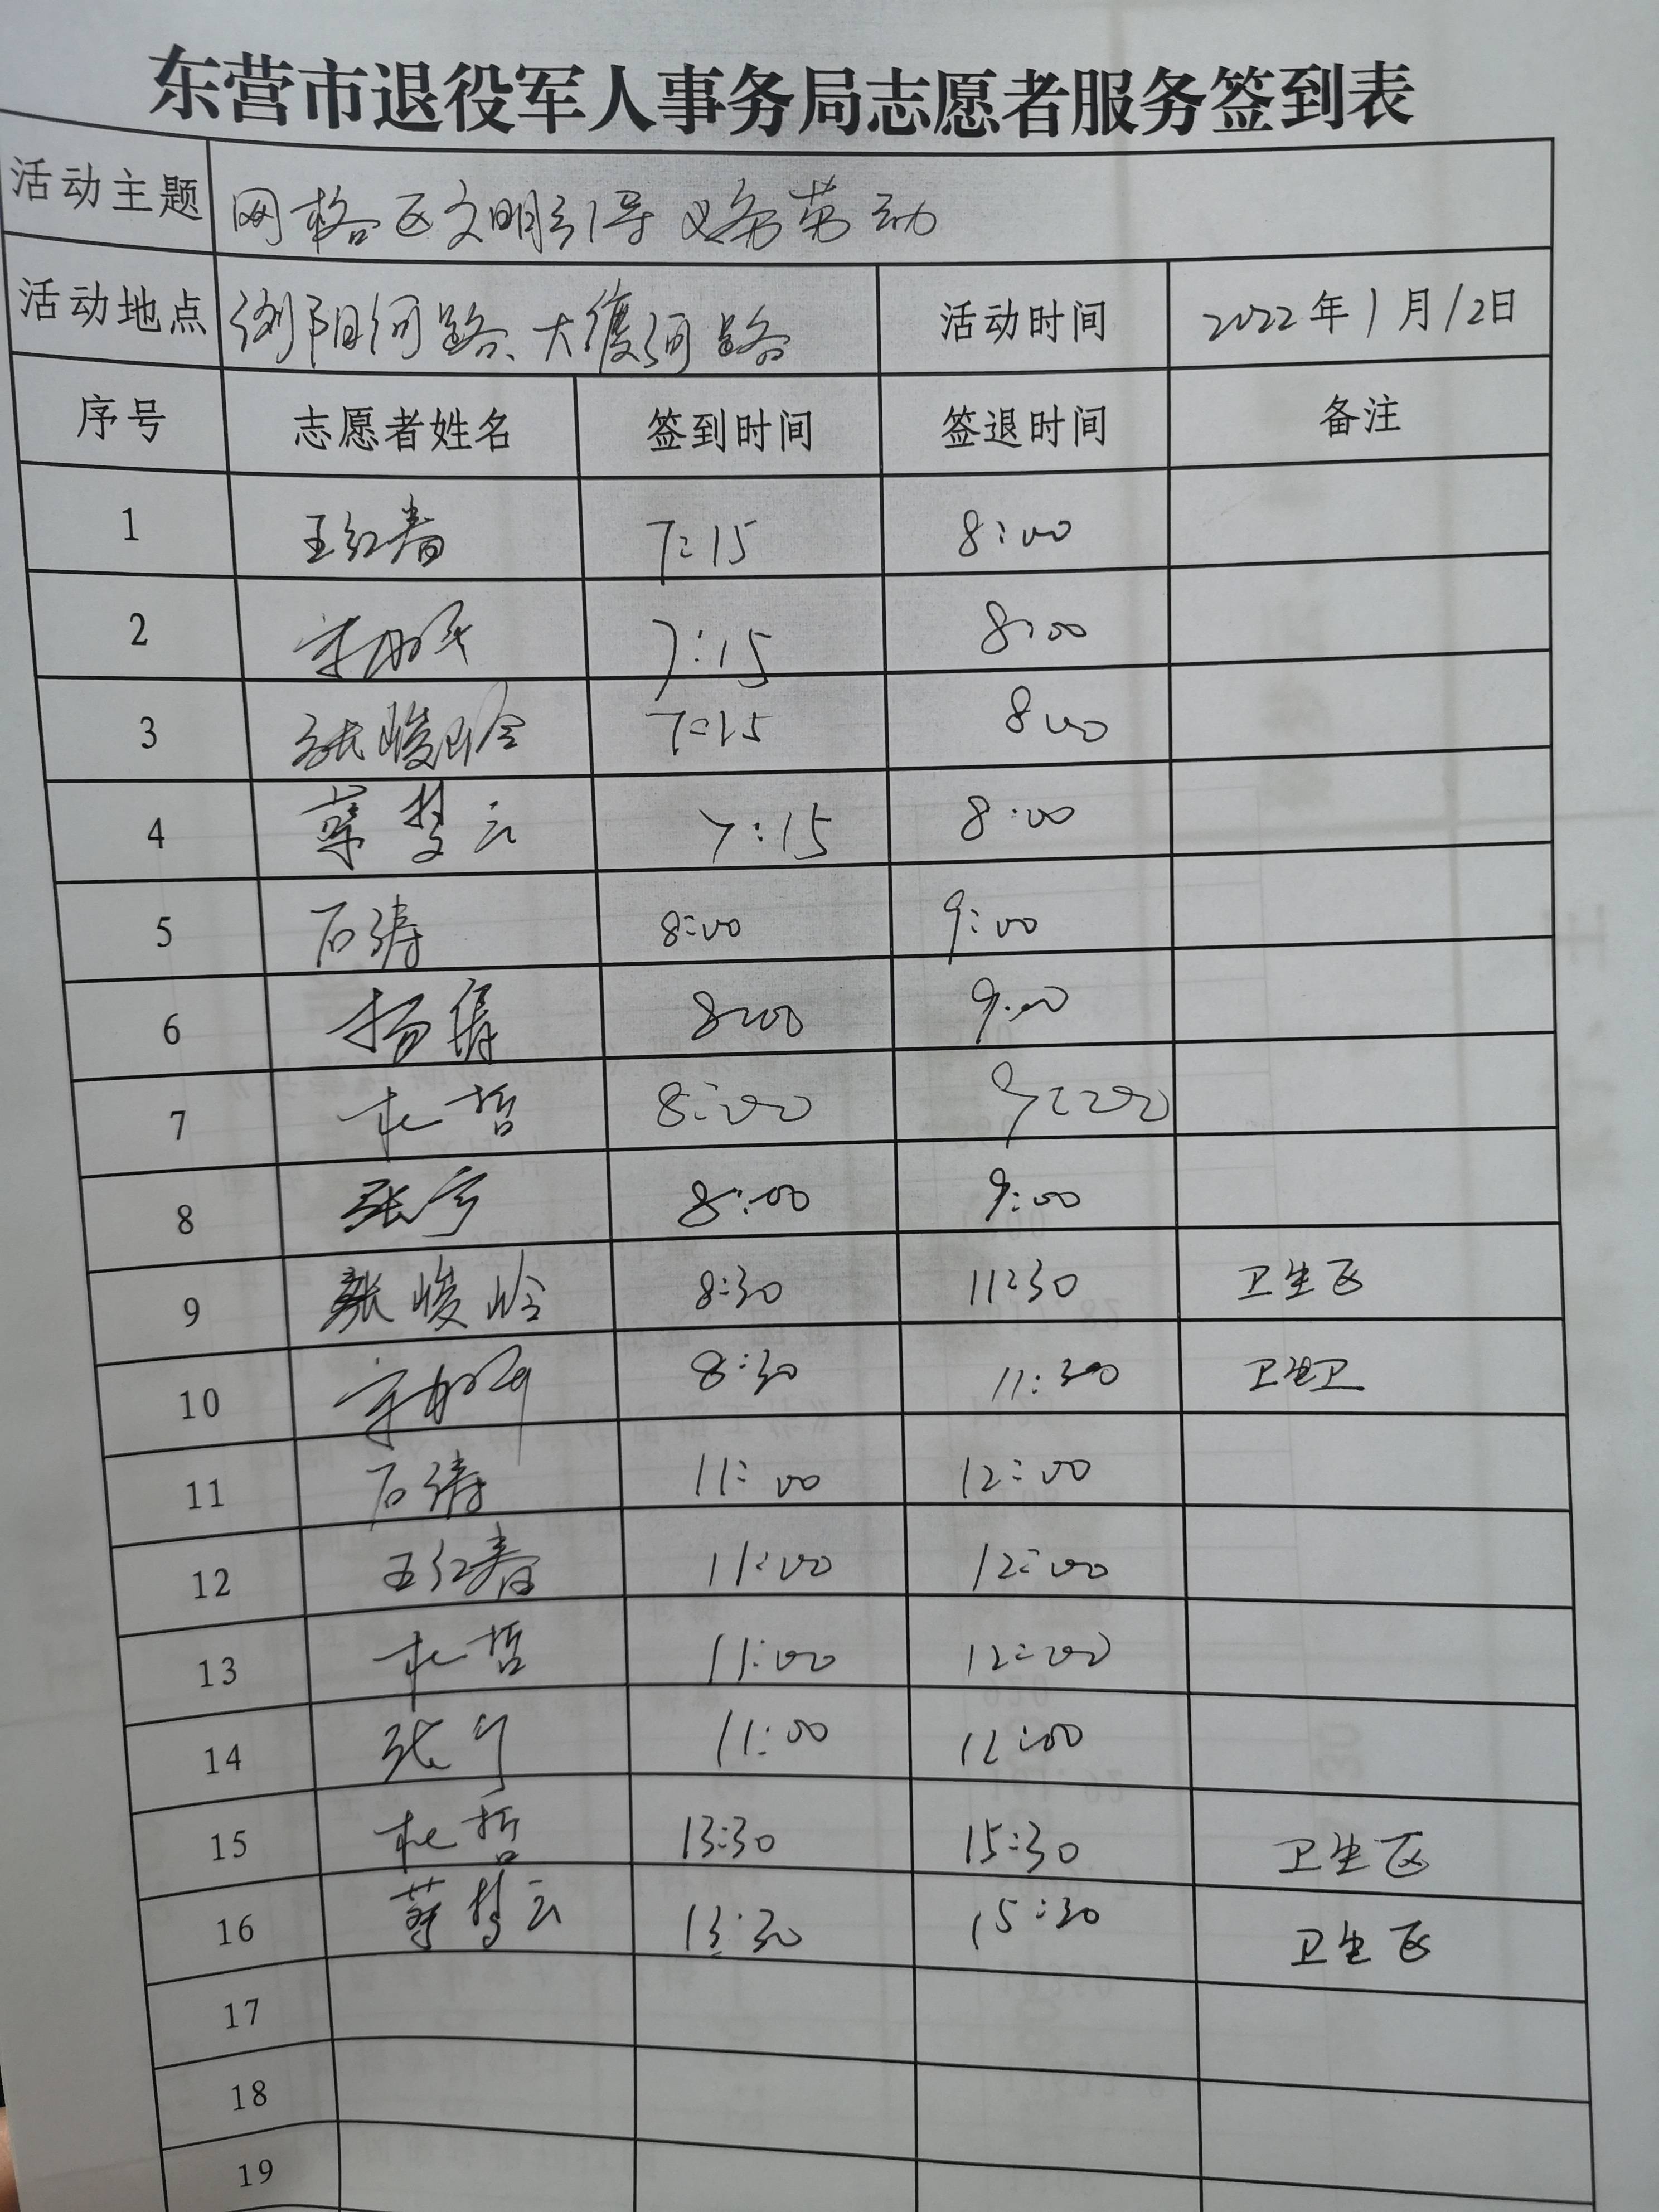 东营市退役军人事务局志愿者服务签到表
活动主题 网格区文明引导 义务劳动
活动地点 浏阳河路、大渡河路 活动时间 2022年1月12日
序号 志愿者姓名 签到时间 签退时间 备注
1 王红春 7:15 8:00
2 7:15 8:00
3 张峻岭 7:15 8:00
4 蔡梦云 7:15 8:00
5 石涛 8:00 9:00
6 杨倩 8:00 9:00
7 杜哲 8:00 9:00
8 张宇 8:00 9:00
9 张峻岭 8:30 11:30 卫生区
10 8:30 11:30 卫生卫
11 石涛 11:00 12:00
12 王红春 11:00 12:00
13 杜哲 11:00 12:00
14 张宇 11:00 12:00
15 杜哲 13:30 15:30 卫生区
16 蔡梦云 13:30 15:30 卫生区
17
18
19